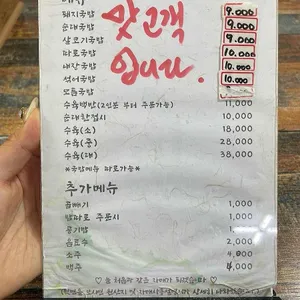 맛고객
입니다.
돼지국밥 9.000
순대국밥 9.000
살코기국밥 9.000
따로국밥 10.000
내장국밥 10.000
섞어국밥 10.000
모듬국밥
수육백반(2인분 부터 주문가능) 11,000
순대한접시 10,000
수육(소) 18,000
수육(중) 28,000
수육(대) 38,000
*국밥메뉴 따로가능*
추가메뉴
곱빼기 1,000
밥따로 주문시 1,000
공기밥 1,000
음료수 2,000
소주 4,000
맥주 4,000